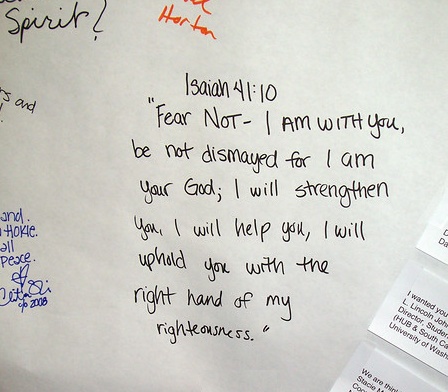 Spirit?
Horton
Isaiah 41:10
"Fear Not - I AM WITH you,
be not dismayed for I am
your God; I will strengthen
you, I will help you, I will
uphold you with the
right hand of my
righteousness."
and
and.
Hokie.
all
Peace.
2008
I wanted you
L. Lincoln Joh
Director, Studen
(HUB & South Ca
University of Was
We are thin
Stacie M